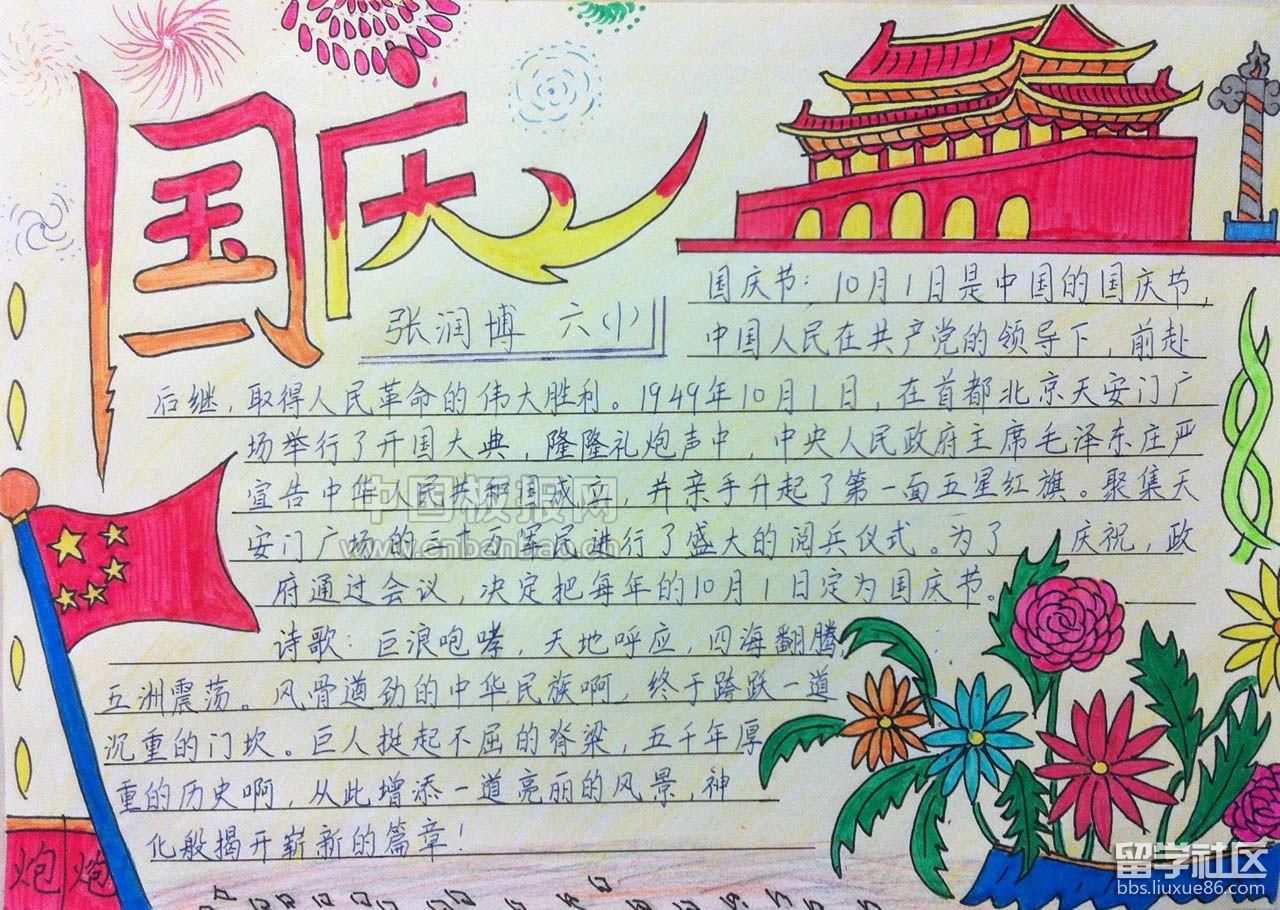 国庆
张润博 六(小)
国庆节：10月1日是中国的国庆节，
中国人民在共产党的领导下，前赴
后继，取得人民革命的伟大胜利。1949年10月1日，在首都北京天安门广
场举行了开国大典，隆隆礼炮声中，中央人民政府主席毛泽东庄严
宣告中华人民共和国成立，并亲手升起了第一面五星红旗。聚集天
安门广场的三十万军民进行了盛大的阅兵仪式。为了 庆祝，政
府通过会议，决定把每年的10月1日定为国庆节。
诗歌：巨浪咆哮，天地呼应，四海翻腾，
五洲震荡。风骨遒劲的中华民族啊，终于跨跃一道
沉重的门坎。巨人挺起不屈的脊梁，五千年厚
重的历史啊，从此增添一道亮丽的风景，神
化般揭开崭新的篇章！
炮 炮
中国板报网
www.cnbanbao.cn
留学社区
bbs.liuxue86.com